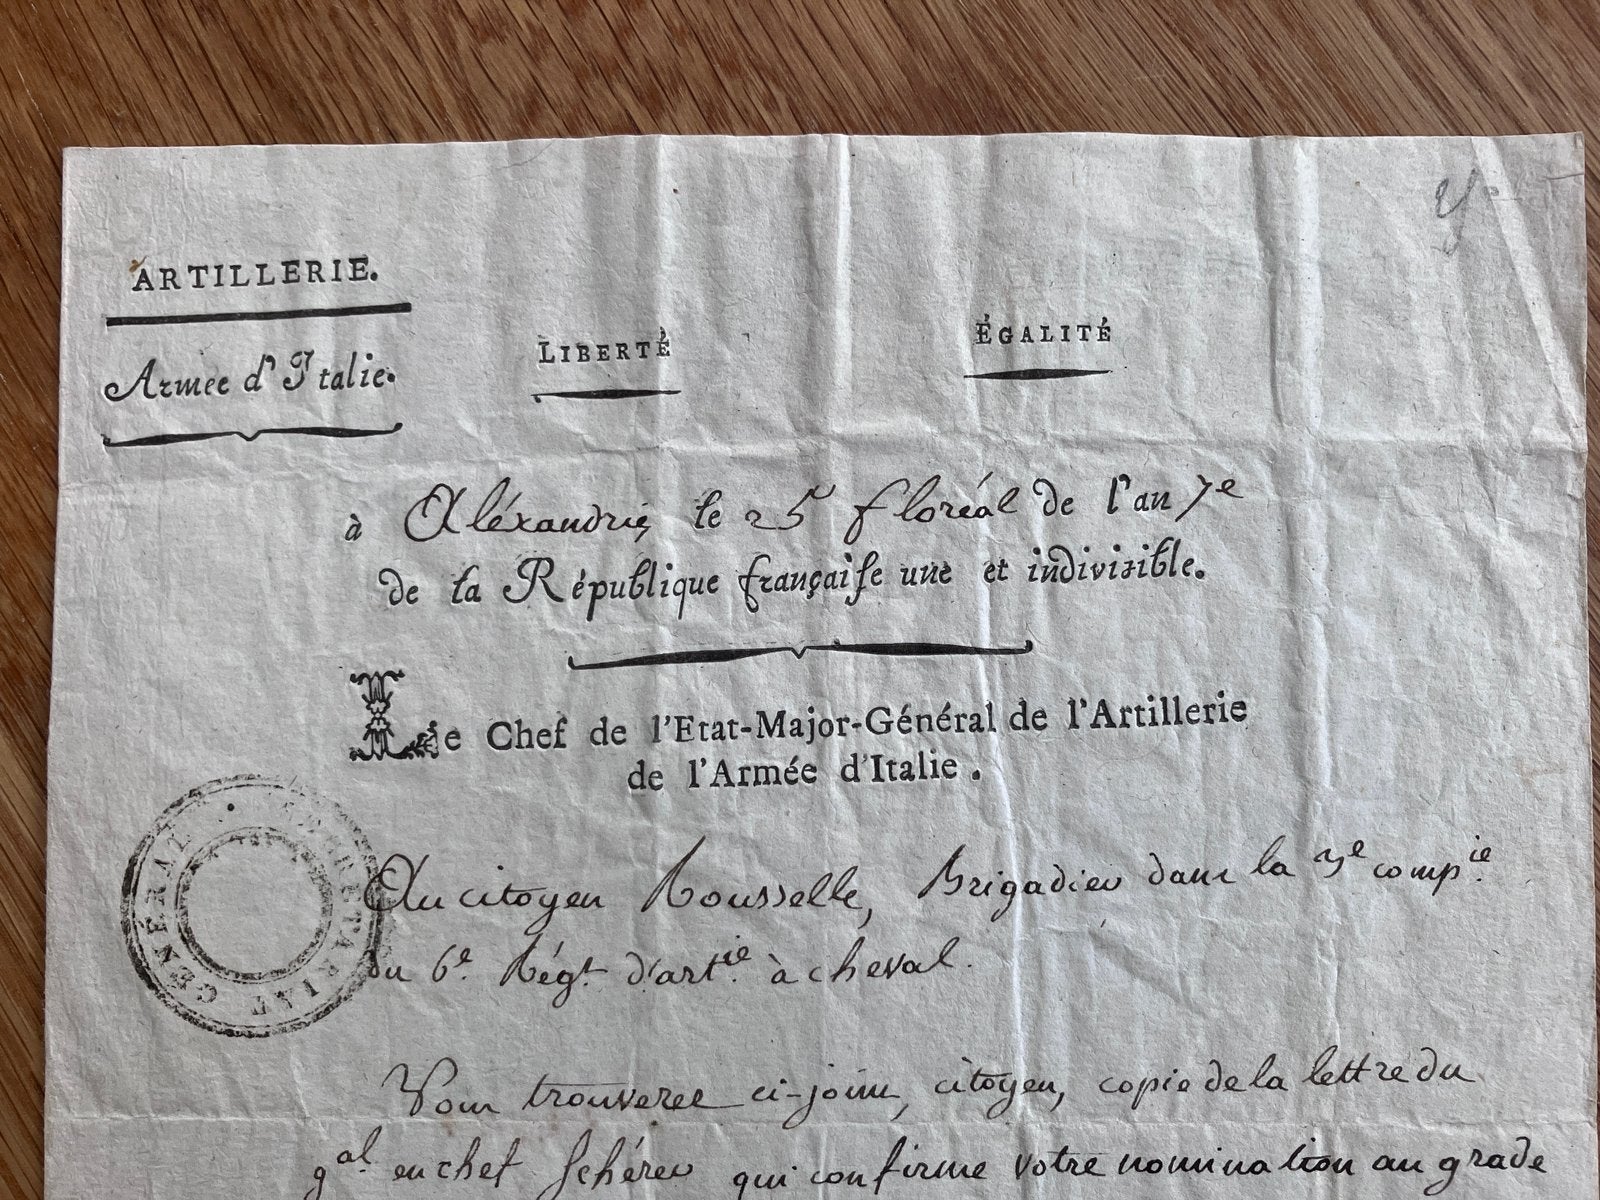 ARTILLERIE.
Armée d'Italie.
LIBERTÉ
ÉGALITÉ
à Aléxandrie, le 25 floréal de l'an 7e
de la République françaiſe une et indivisible.
Le Chef de l'Etat-Major-Général de l'Artillerie
de l'Armée d'Italie.
GÉNÉRAL
SECRETARIAT
Au citoyen Rousselle, Brigadier dans la 3e compie.
du 6e. Régt. d'artie. à cheval.
Vous trouverez ci-joint, citoyen, copie de la lettre du
gal. en chef Schérer qui confirme votre nomination au grade